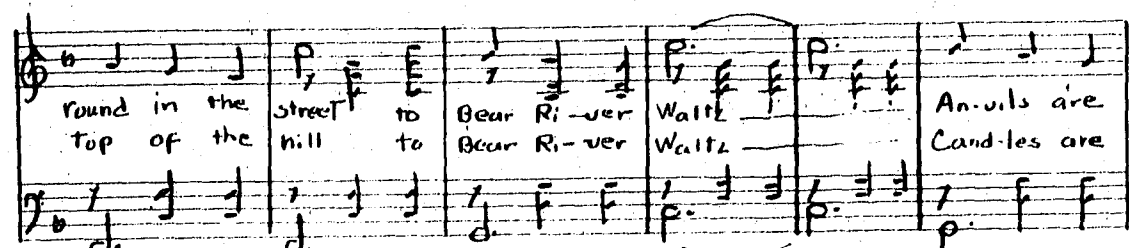 round in the street to Bear Ri-ver Waltz An-vils are
Top of the hill to Bear Ri-ver Waltz Cand-les are